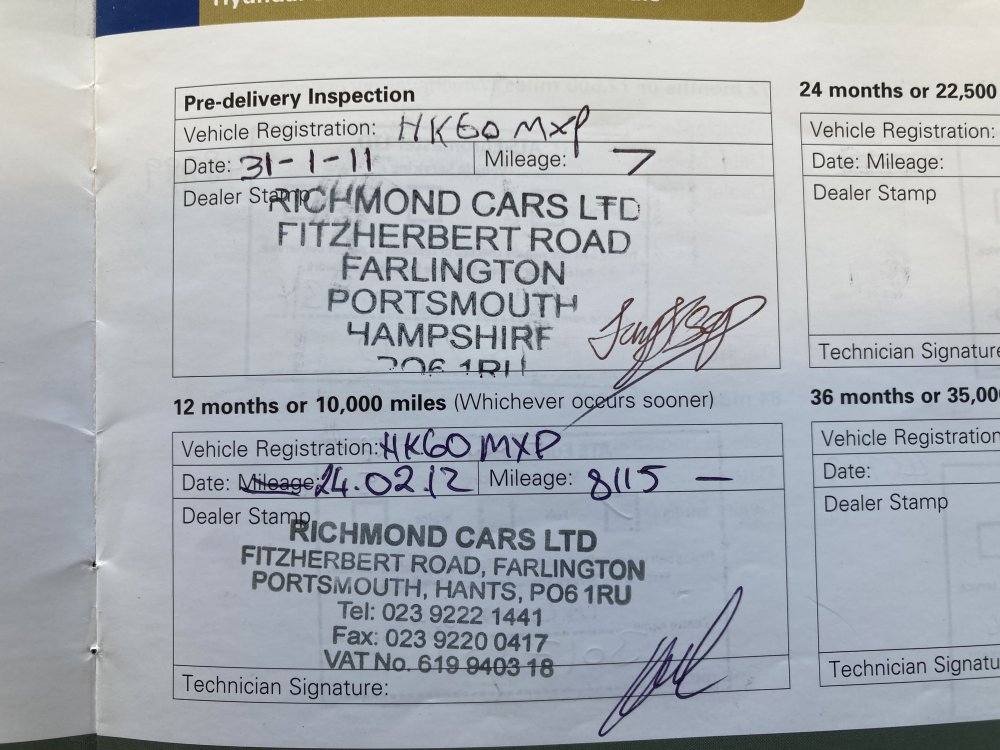 Pre-delivery Inspection
Vehicle Registration: HK60 MXP
Date: 31-1-11 Mileage: 7
Dealer Stamp
RICHMOND CARS LTD
FITZHERBERT ROAD
FARLINGTON
PORTSMOUTH
HAMPSHIRE
PO6 1RU
12 months or 10,000 miles (Whichever occurs sooner)
Vehicle Registration: HK60 MXP
Date: Mileage: 24.02.12 Mileage: 8115 —
Dealer Stamp
RICHMOND CARS LTD
FITZHERBERT ROAD, FARLINGTON
PORTSMOUTH, HANTS, PO6 1RU
Tel: 023 9222 1441
Fax: 023 9220 0417
VAT No. 619 9403 18
Technician Signature:
24 months or 22,500
Vehicle Registration:
Date: Mileage:
Dealer Stamp
Technician Signature
36 months or 35,00
Vehicle Registration
Date:
Dealer Stamp
Technician Signatu